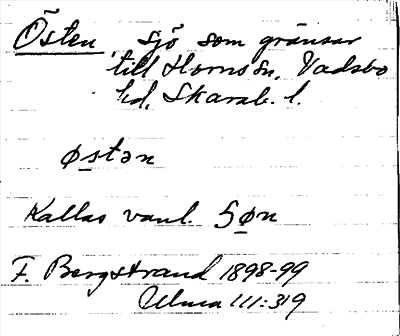 Östen, sjö som gränsar
till Horns sn, Vadsbo
hd, Skarab. l.
østən
Kallas vanl. Søn
F. Bergstrand 1898-99
Ulma 111:319